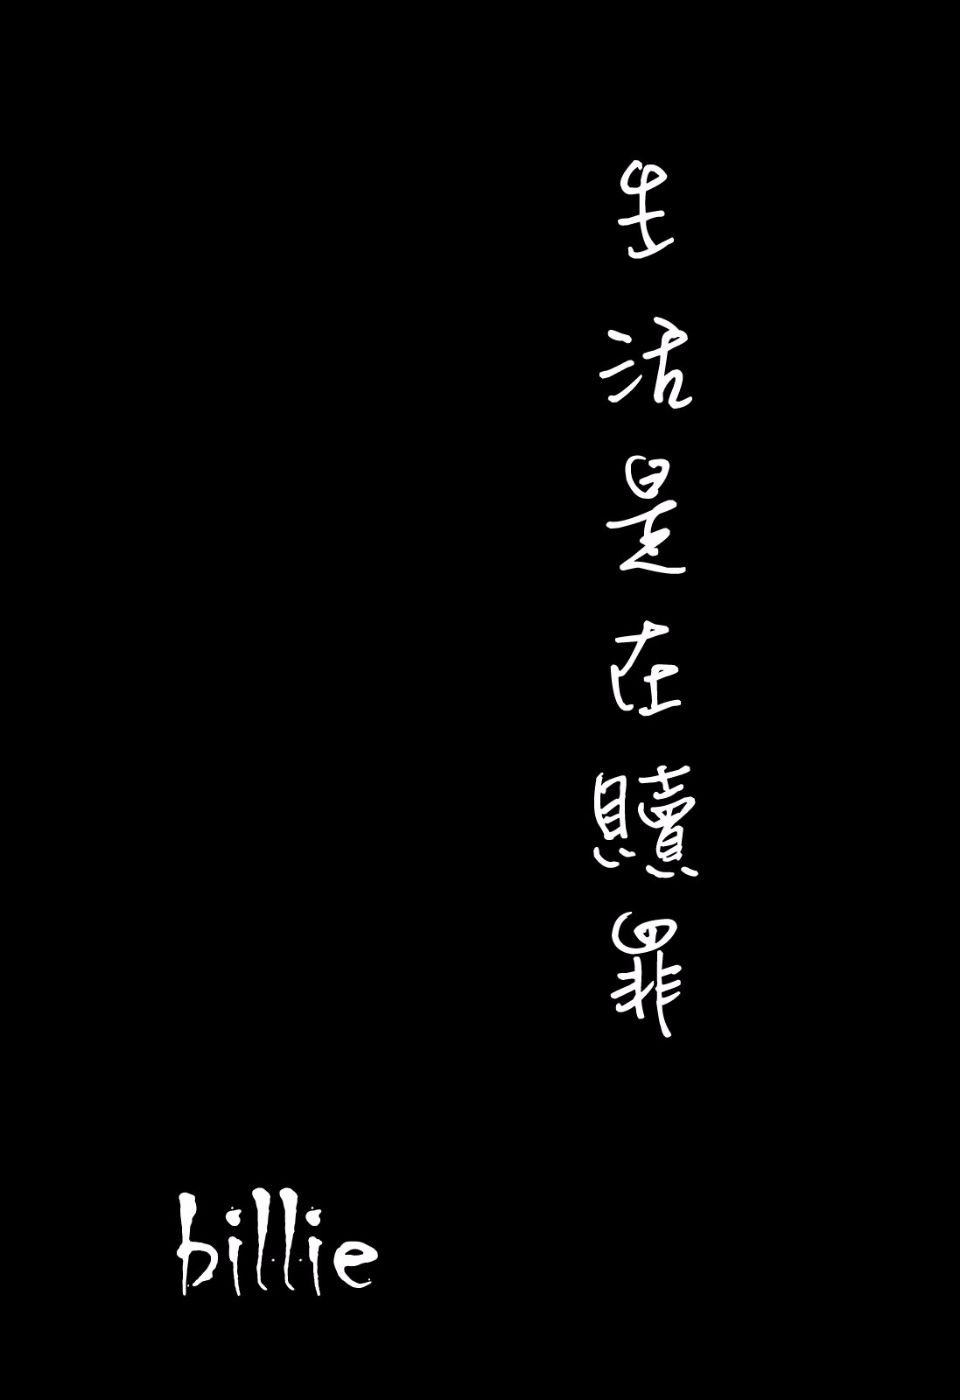 生活是在贖罪
billie